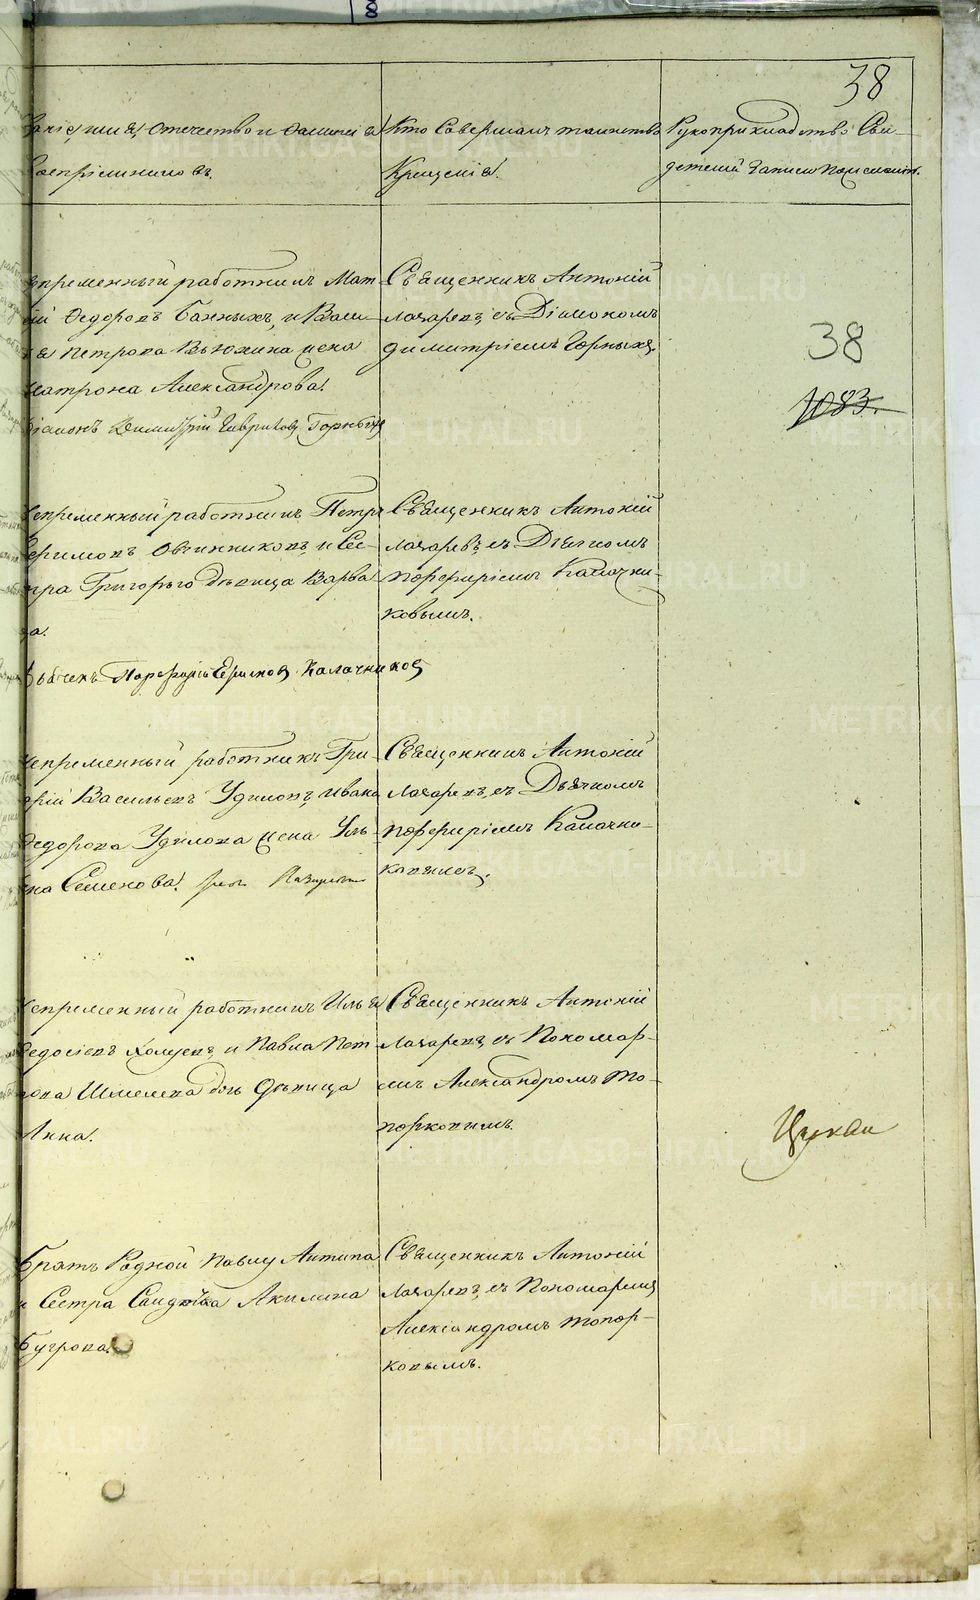 38
Званіе, имя, отечество и фамилія
Воспріемниковъ.
Кто совершалъ таинство
Крещенія.
Рукоприкладство Сви-
детелей записи по желанію.
Непременный работникъ Мат-
ѳій Ѳедоровъ Банныхъ, и Васи-
лія Петрова Вьюхина жена
Матрона Александрова.
Діаконъ Димитрій Гавриловъ Горныхъ
Священникъ Антоній
Лазаревъ, съ Діакономъ
Димитріемъ Горныхъ,
38
1083.
Непременный работникъ Петръ
Овчинниковъ, и Сес-
тра Григорьего девица Варва
ра.
Дьячекъ Порфирій Калачниковъ
Священникъ Антоній
Лазаревъ, съ Дьячкомъ
Порфиріемъ Калачни-
ковымъ.
Непременный работникъ Гри-
горій Васильевъ Удиловъ, Ивана
Ѳедорова Удилова жена Улья-
на Семенова.
Священникъ Антоній
Лазаревъ, съ Дьячкомъ
Порфиріемъ Калачни-
ковымъ.
Непременный работникъ Илья
Ѳедосіевъ и Павла Пет-
рова Шмелева дочь девица
Анна.
Священникъ Антоній
Лазаревъ, съ Пономар-
емъ Александромъ То-
порковымъ.
Братъ Родной Павлу Антипа
и Сестра Акилина
Бугрова.
Священникъ Антоній
Лазаревъ, съ Пономаремъ
Александромъ Топор-
ковымъ.